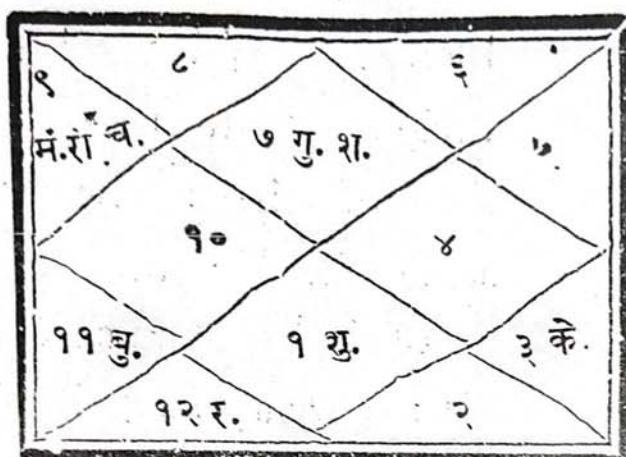 ८ ६
९
मं. रा. च. ७ गु. श.
१० ४
११ बु. १ शु. ३ के.
१२ र. २